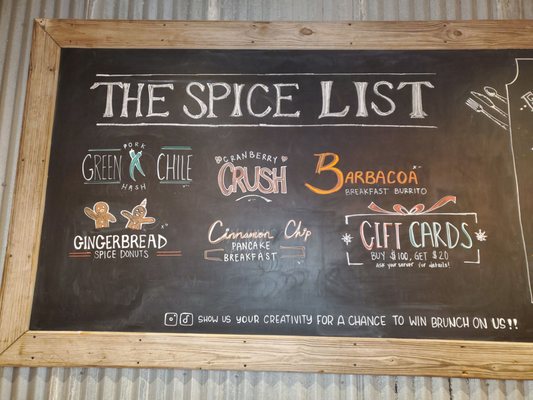 THE SPICE LIST
GREEN PORK HASH CHILE
CRANBERRY
CRUSH
BARBACOA
BREAKFAST BURRITO
GINGERBREAD
SPICE DONUTS
Cinnamon Chip
PANCAKE
BREAKFAST
GIFT CARDS
BUY $100, GET $20
ASK your server for details!
SHOW US YOUR CREATIVITY FOR A CHANCE TO WIN BRUNCH ON US!!